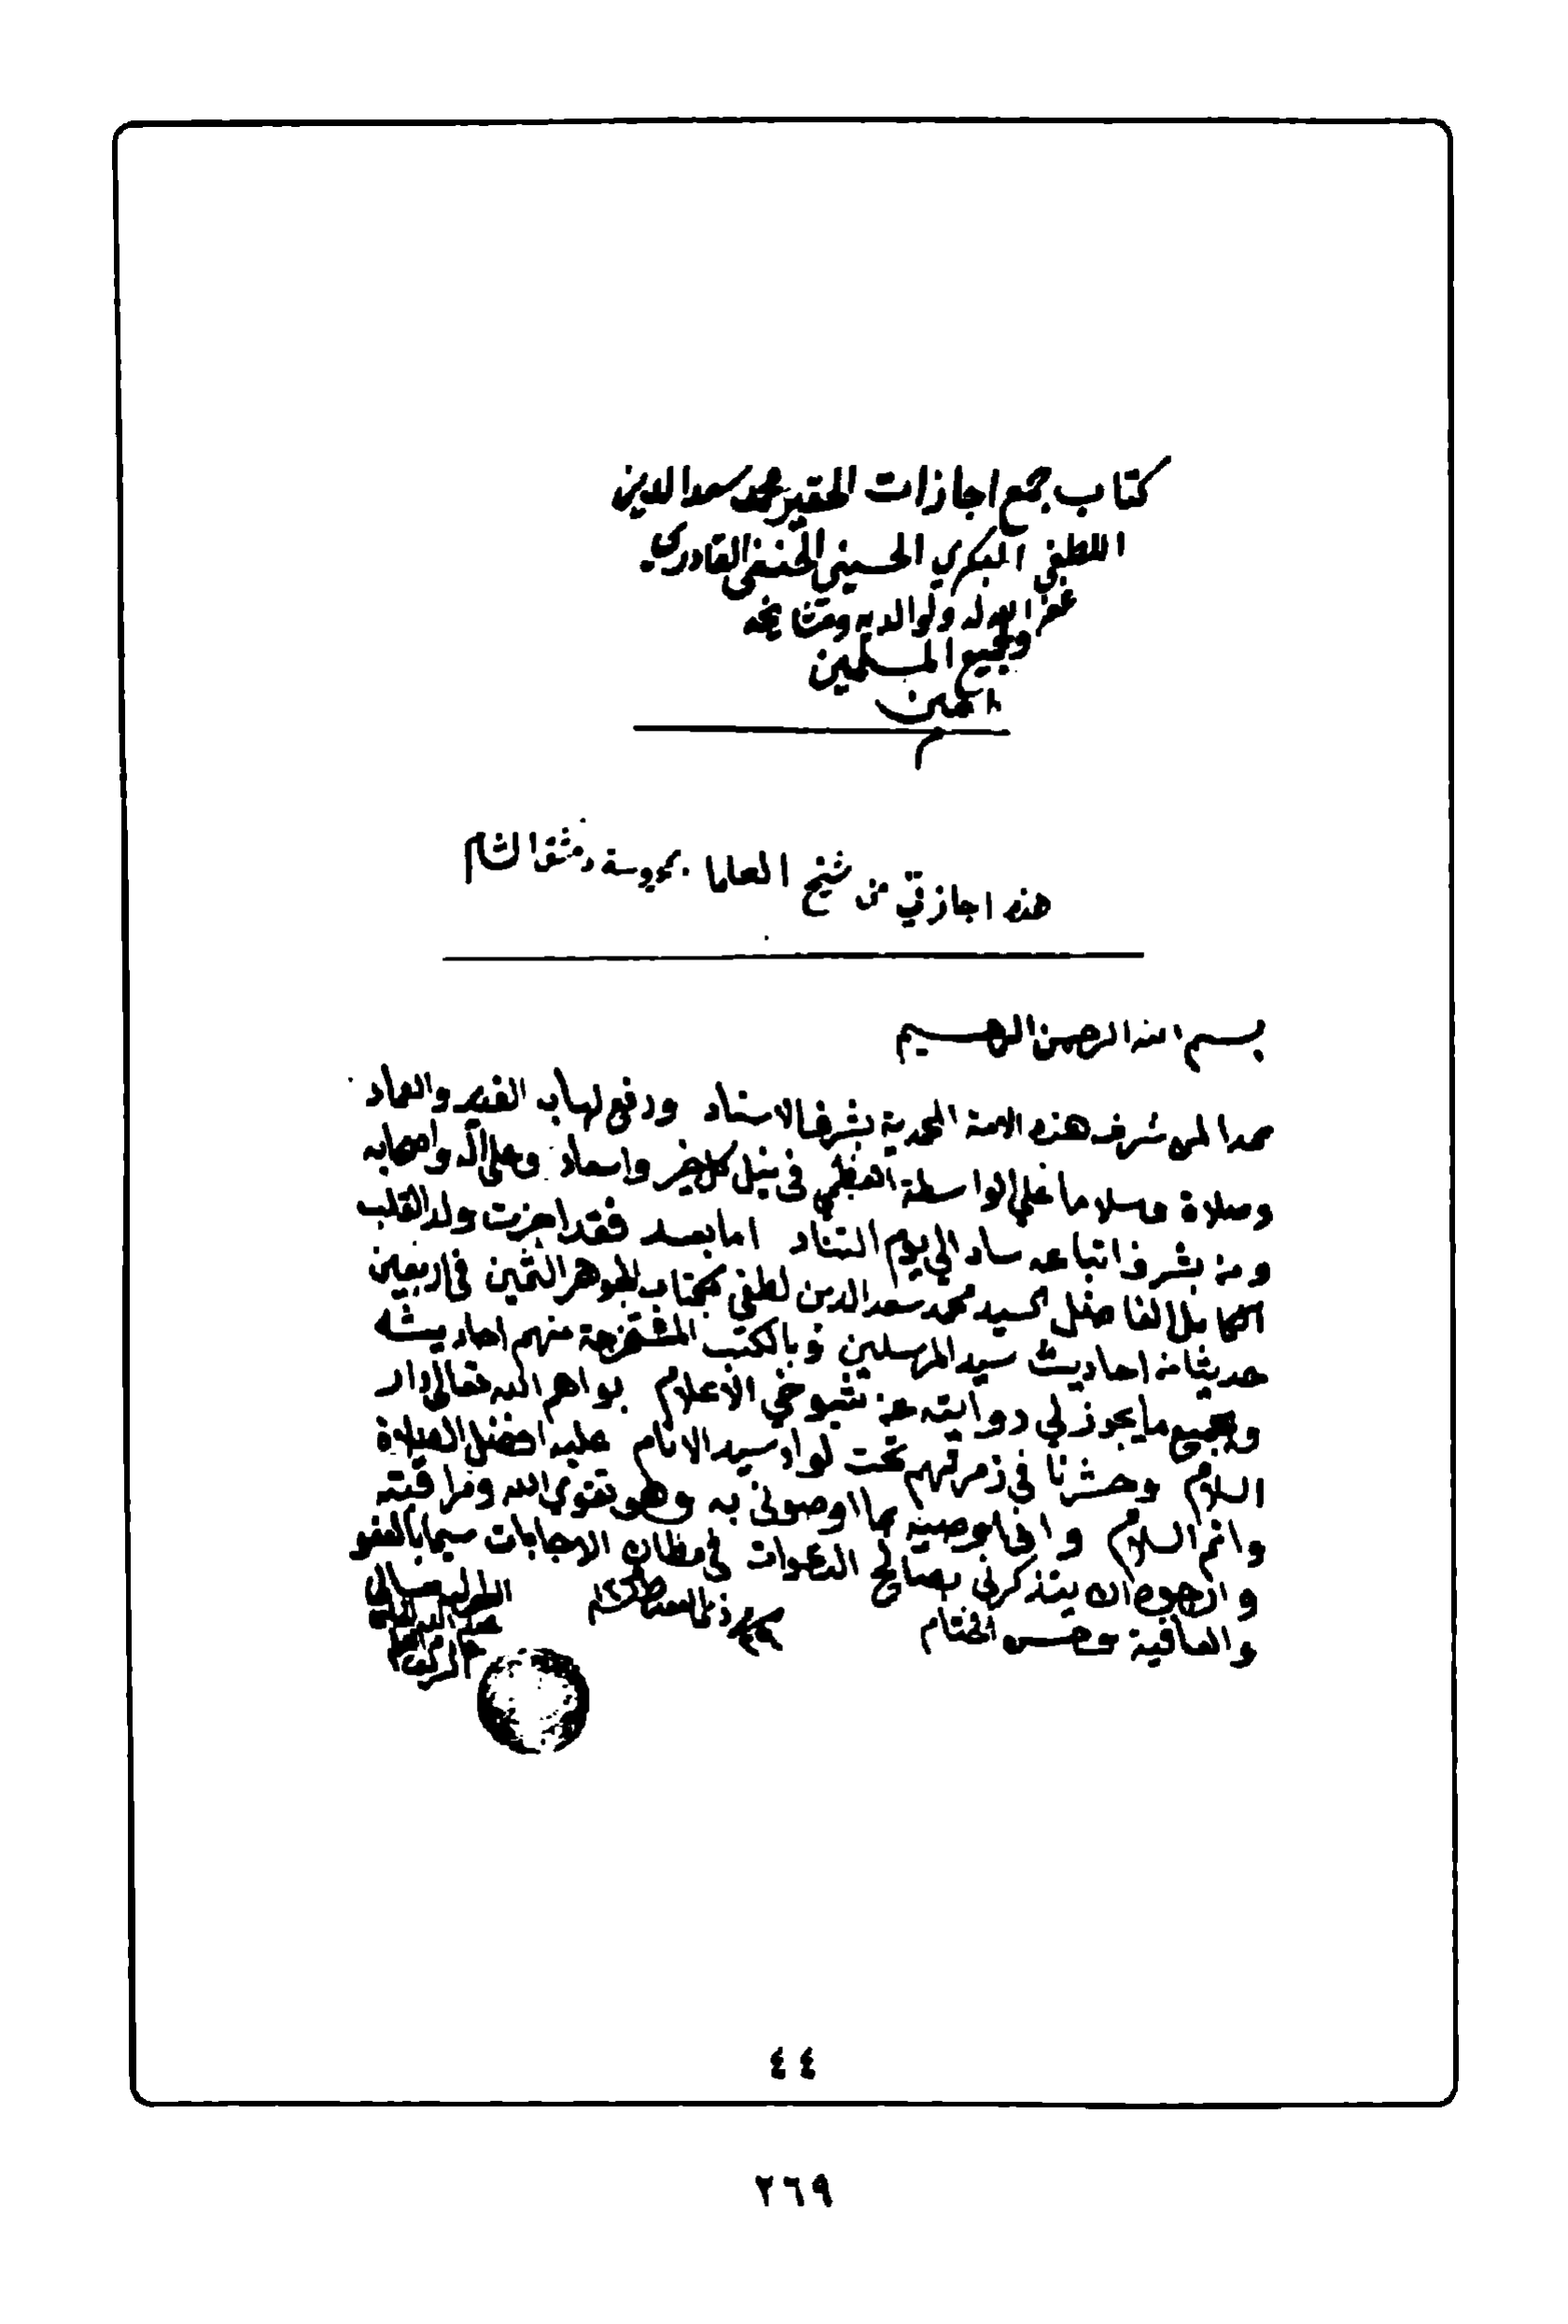 كتاب جمع اجازات الحقير محمد سعد الدين
اللطفي البكري الحسيني الحنفي القادري
غفر الله له ولوالديه ومشايخه
ولجميع المسلمين
امين
م
هذه اجازتي من شيخ العلما بمحروسة دمشق الشام
بسم الله الرحمن الرحيم
حمدا لمن شرف هذه الامة المحمدية بشرف الاسناد ورفع لهاب والعماد
وصلاة وسلاما على الواسطة العظمى في نيل كل خير واسعاد وعلى اله واصحابه
ومن بشرف اتباعه ساد الى يوم التناد اما بعد فقد اجزت ولد القلب
الكامل الفاضل السيد محمد سعد الدين لطفي بكتاب الجوهر الثمين في اربعين
حديثا من احاديث سيد المرسلين وبالكتب المستخرجة منهم احاديثه
وبجميع ما يجوز لي روايته عن شيوخي الاعلام بواهم الله تعالى دار
السلام وحشرنا في زمرتهم تحت لواء سيد الانام عليه افضل الصلاة
واتم السلام واني اوصيه بما اوصوني به وهو تقوى الله ومراقبته
وارجوه ان يتذكرني بصالح الدعوات في مظان الاجابات سيما بالعفو
والعافية وحسن الختام
٤٤
٢٦٩